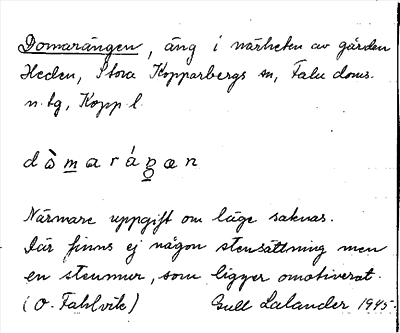 Domarängen, äng i närheten av gården
Heden, Stora Kopparbergs sn, Falu doms.
n. tg, Kopp. l.
dòmaráŋæn
Närmare uppgift om läge saknas.
Där finns ej någon stensättning men
en stenmur, som ligger omotiverat.
(O. Fahlvik) Gull Lalander 1945.